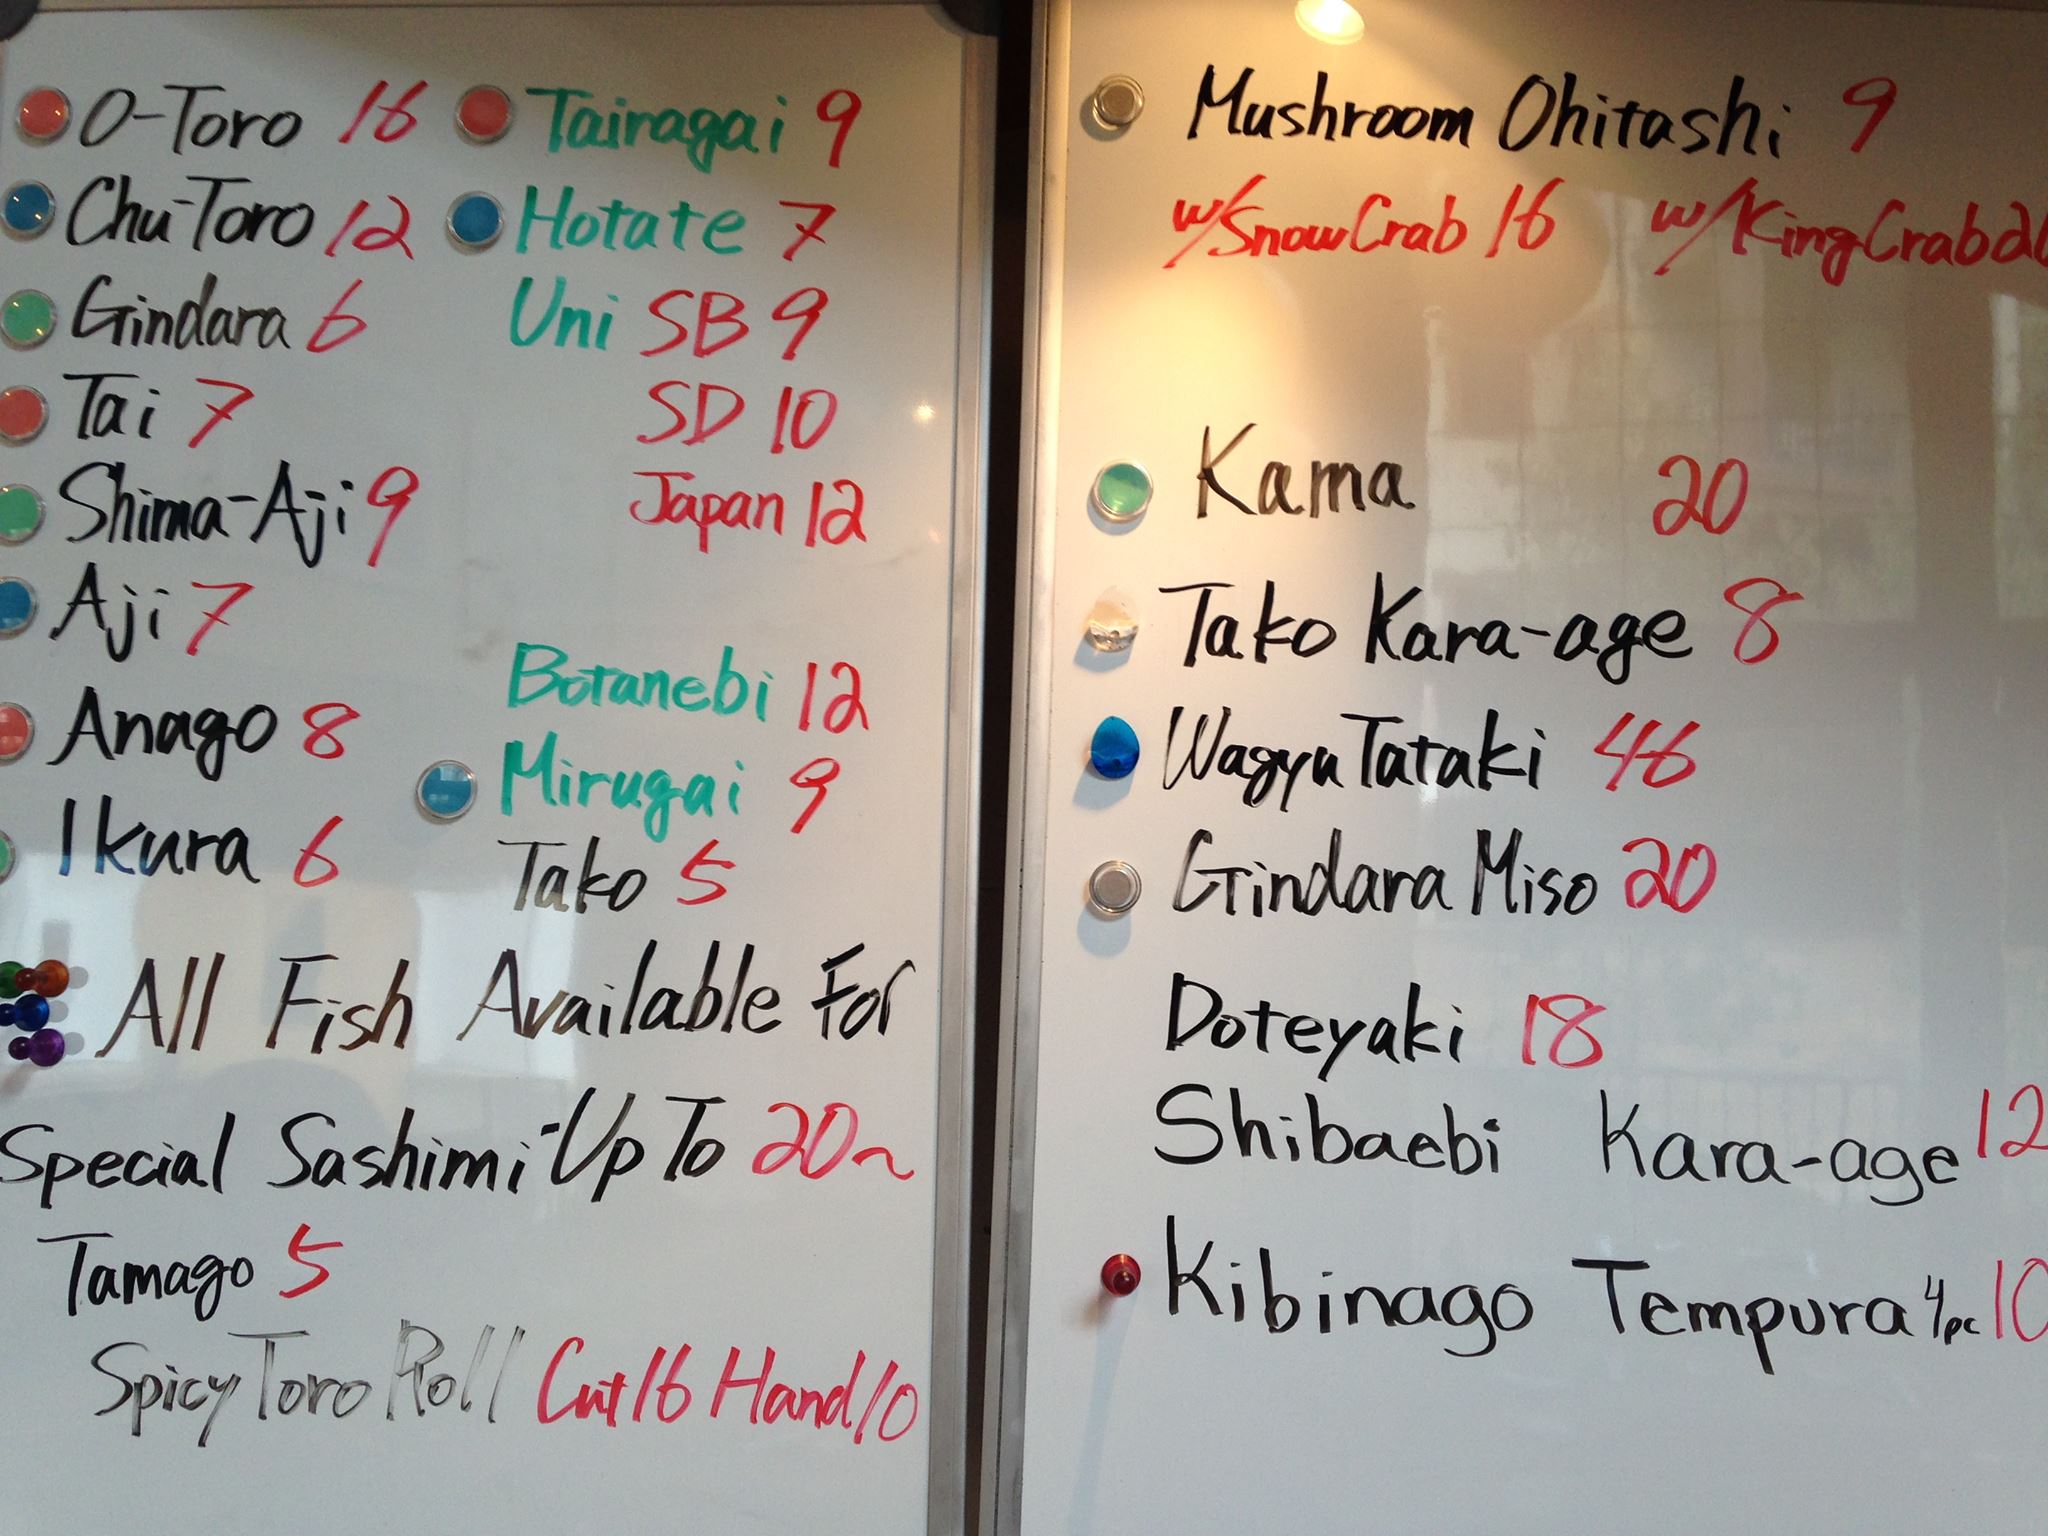 O-Toro 16
Chu-Toro 12
Gindara 6
Tai 7
Shima-Aji 9
Aji 7
Anago 8
Ikura 6
Tairagai 9
Hotate 7
Uni SB 9
SD 10
Japan 12
Botanebi 12
Mirugai 9
Tako 5
All Fish Available For
Special Sashimi-Up To 20~
Tamago 5
Spicy Toro Roll Cut 16 Hand 10
Mushroom Ohitashi 9
w/Snow Crab 16 w/King Crab
Kama 20
Tako Kara-age 8
Wagyu Tataki 46
Gindara Miso 20
Doteyaki 18
Shibaebi Kara-age 12
Kibinago Tempura 4/pc 10